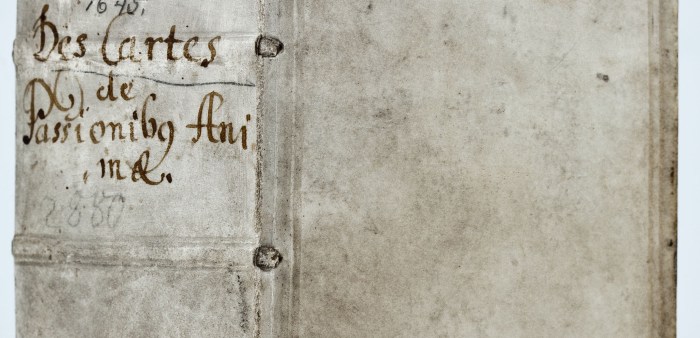 1645.
Des Cartes
de
Passionibꝯ Ani,
,mæ.
2880